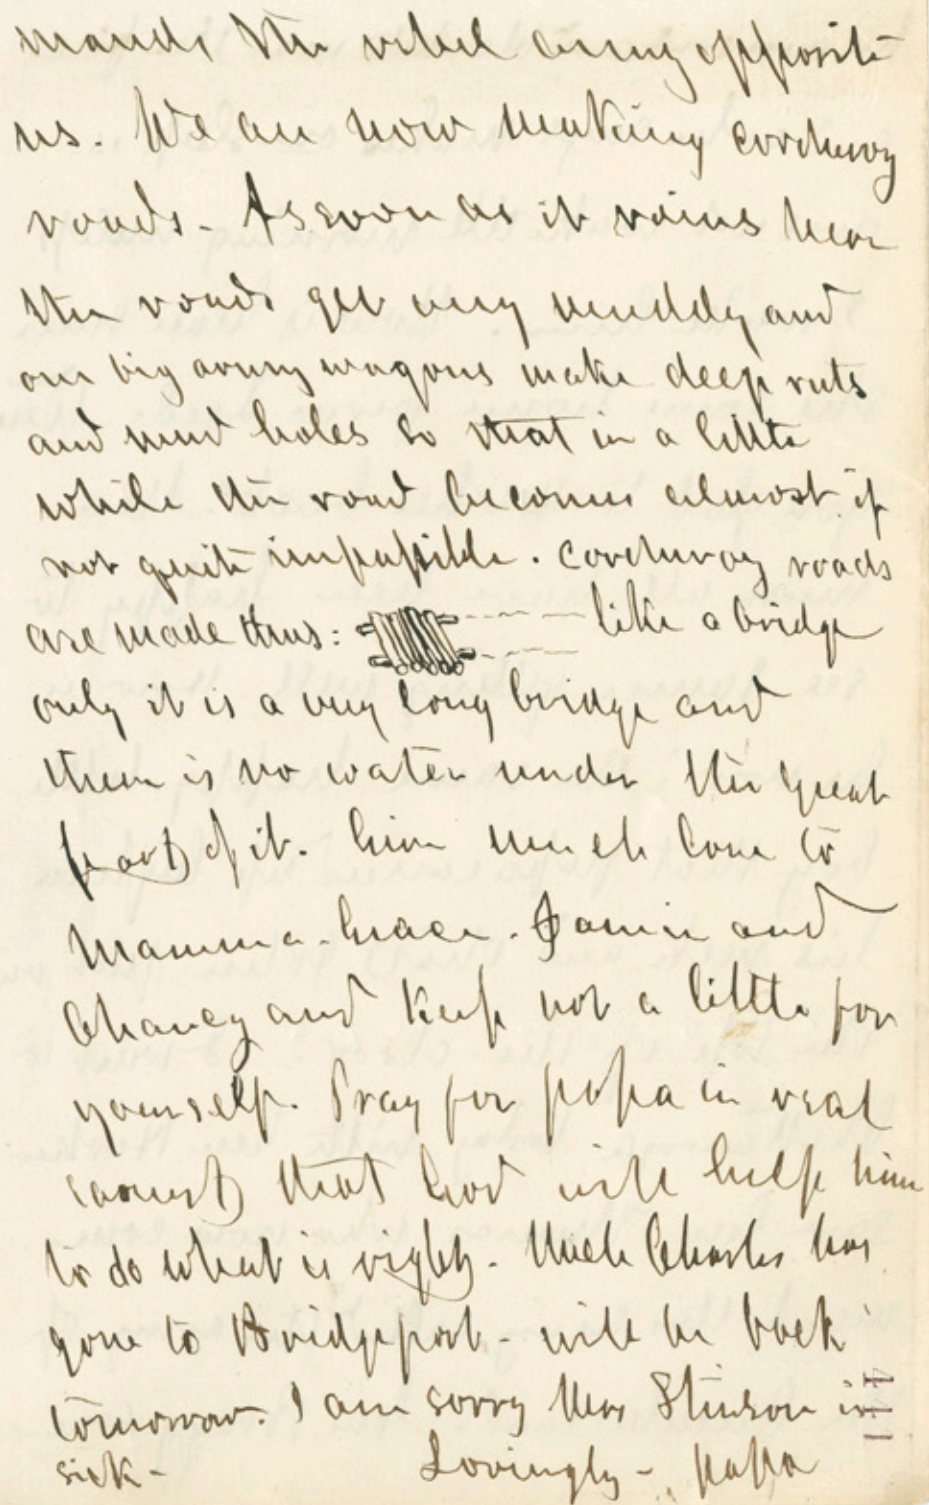 mands the rebel army opposite
us. We are now making corduroy
roads - As soon as it rains hear
the roads get very muddy and
our big army wagons make deep ruts
and mud holes so that in a little
while the road becomes almost if
not quite impassible. Corduroy roads
are made thus: like a bridge
only it is a very long bridge and
there is no water under the great
part of it. Give much love to
Mamma - Grace - Jamie and
Chancy and Keep not a little for
yourself. Pray for papa in real
earnest that God will help him
to do what is right - Uncle Charles has
gone to Bridgeport - will be back
tomorrow. I am sorry Stinson is
sick -
Lovingly - papa
1441